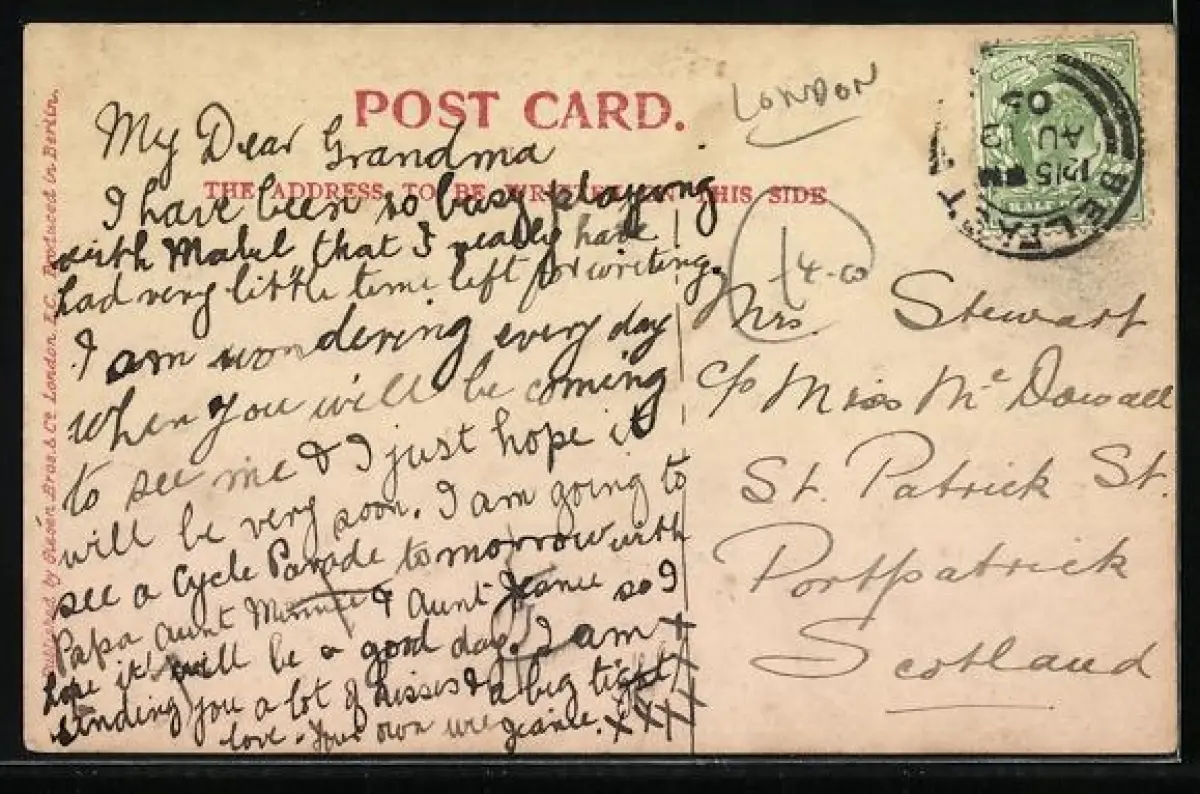 POST CARD.
THE ADDRESS TO BE WRITTEN ON THIS SIDE
LONDON
My Dear Grandma
I have been so busy playing
with Mabel that I really have
had very little time left for writing.
I am wondering every day
when you will be coming
to see me & I just hope it
will be very soon. I am going to
see a Cycle Parade tomorrow with
Papa Aunt Minnie & Aunt Jeanie so I
hope it will be a good day. I am
sending you a lot of kisses & a big tight
love. Your own wee Jeanie. XXXX
14-00
Mrs. Stewart
c/o Miss Mc Dowall
St. Patrick St.
Portpatrick
Scotland
BELFAST
12 15 PM
AU
05
HALF PENNY
Published by Céasar Bros. & Co. London, E.C. Produced in Berlin.